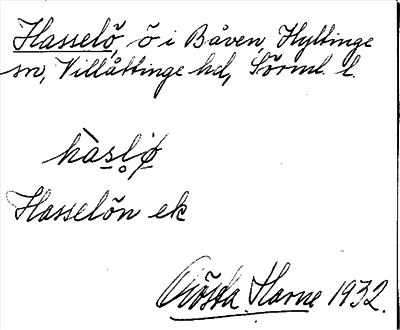 Hasselö, ö i Båven, Hyltinge
sn, Villåttinge hd, Sörml. l.
hàslø
Hasselön ek
Gösta Harne 1932.